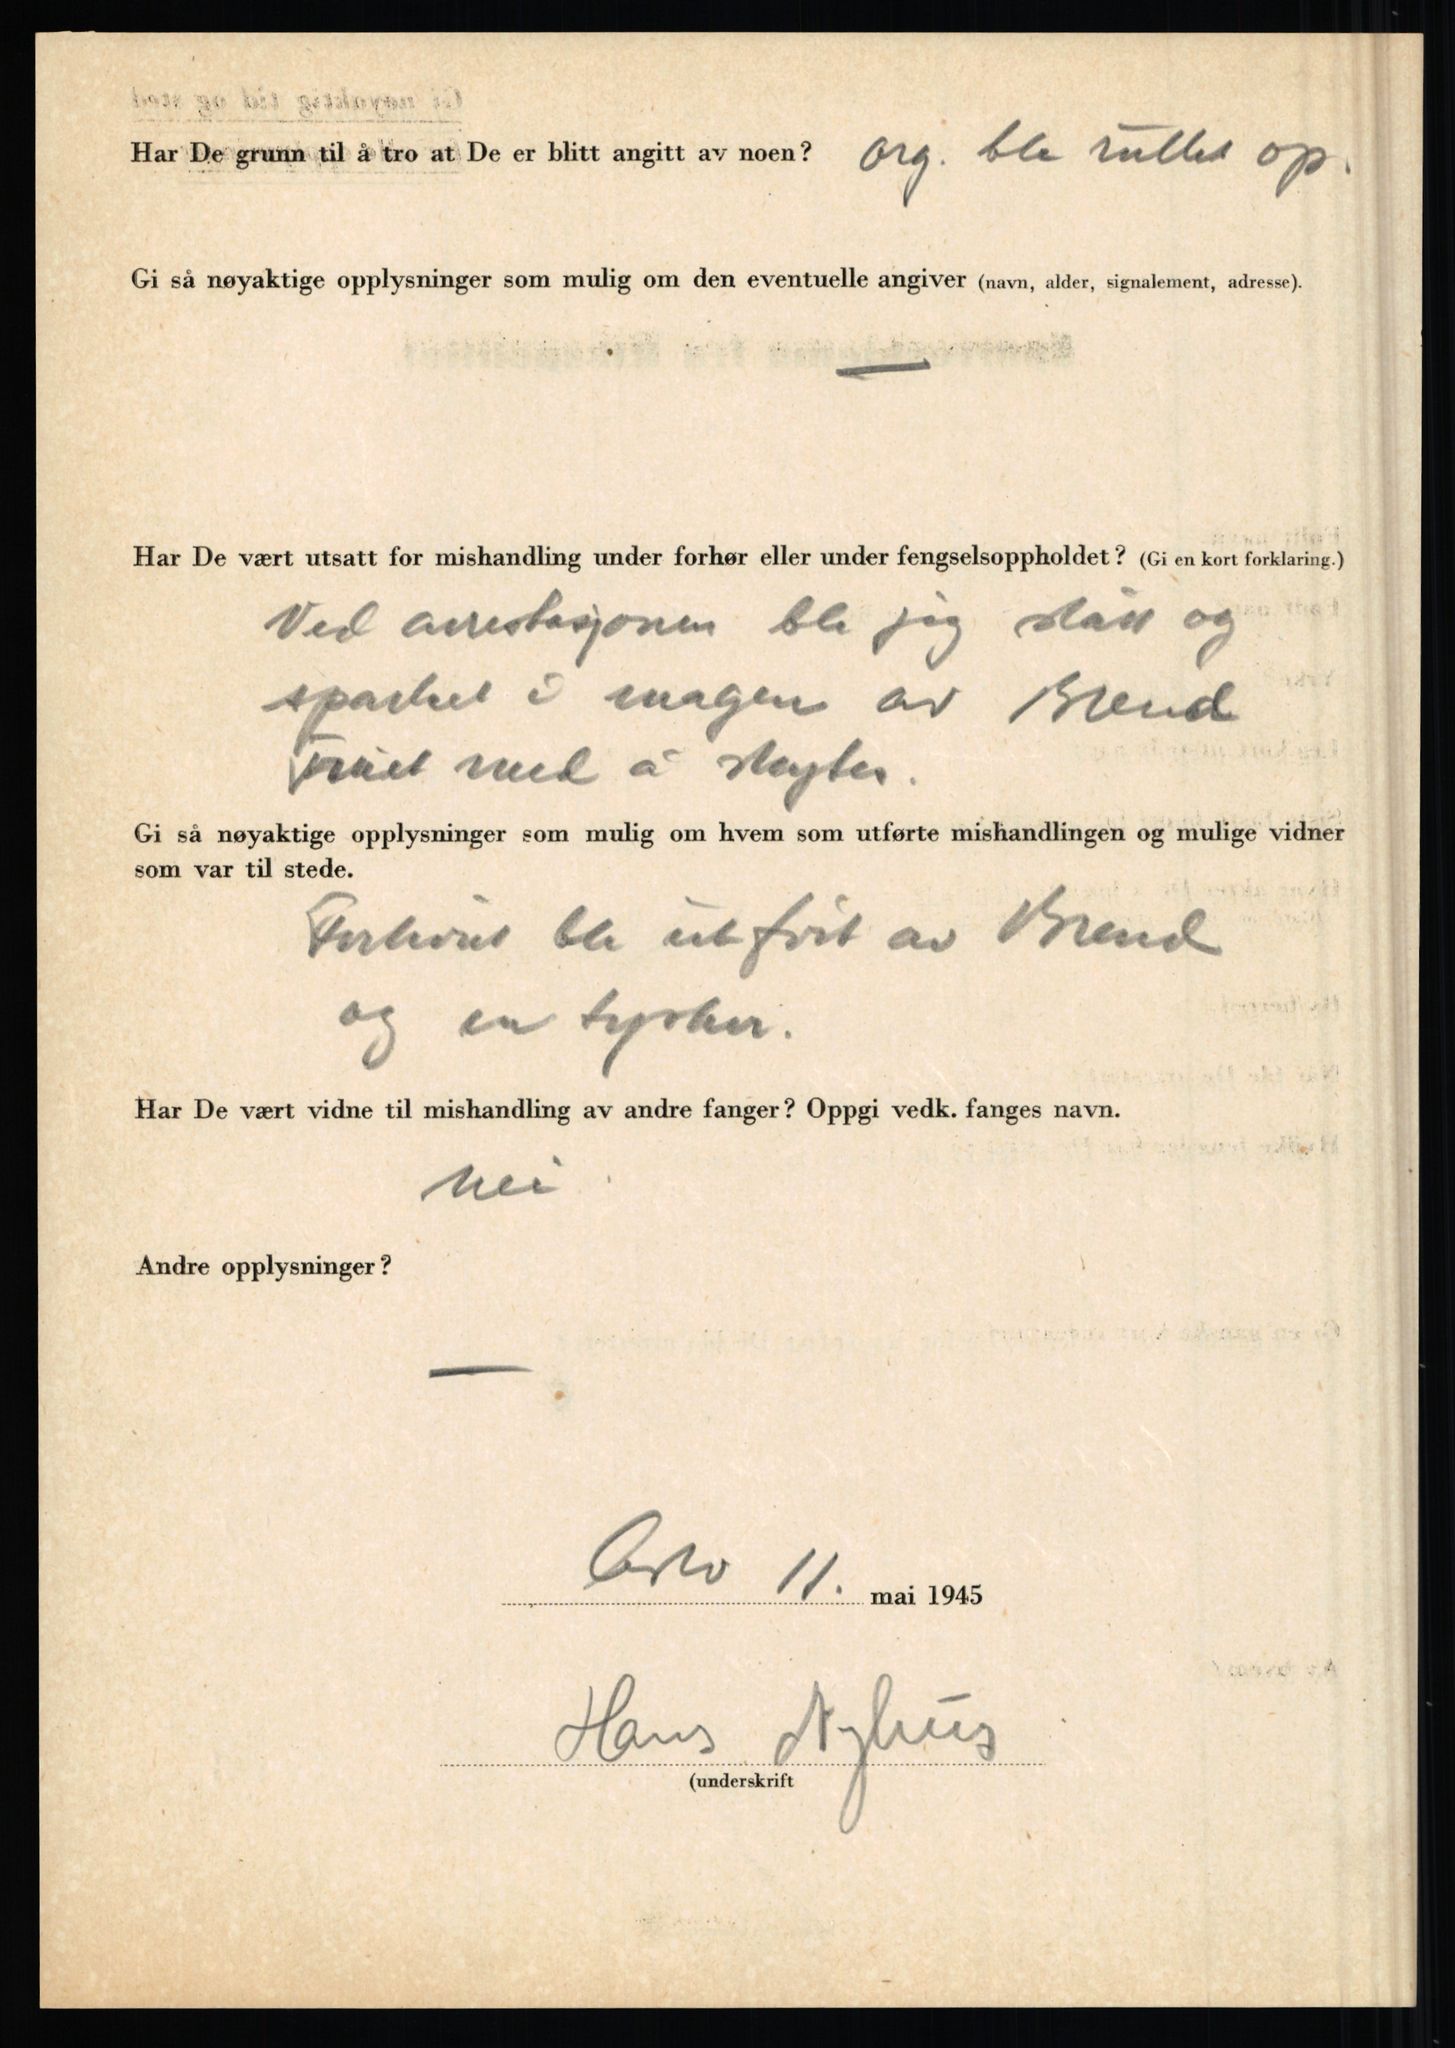 Har De grunn til å tro at De er blitt angitt av noen? org. ble rullet op.
Gi så nøyaktige opplysninger som mulig om den eventuelle angiver (navn, alder, signalement, adresse).
—
Har De vært utsatt for mishandling under forhør eller under fengselsoppholdet? (Gi en kort forklaring.)
Ved arrestasjonen ble jeg slått og
sparket i magen av Brend
Truet med å skytes.
Gi så nøyaktige opplysninger som mulig om hvem som utførte mishandlingen og mulige vidner
som var til stede.
Forhöret ble utfört av Brend
og en tysker.
Har De vært vidne til mishandling av andre fanger? Oppgi vedk. fanges navn.
Nei
Andre opplysninger?
—
Oslo 11. mai 1945
Hans Nyhus
(underskrift